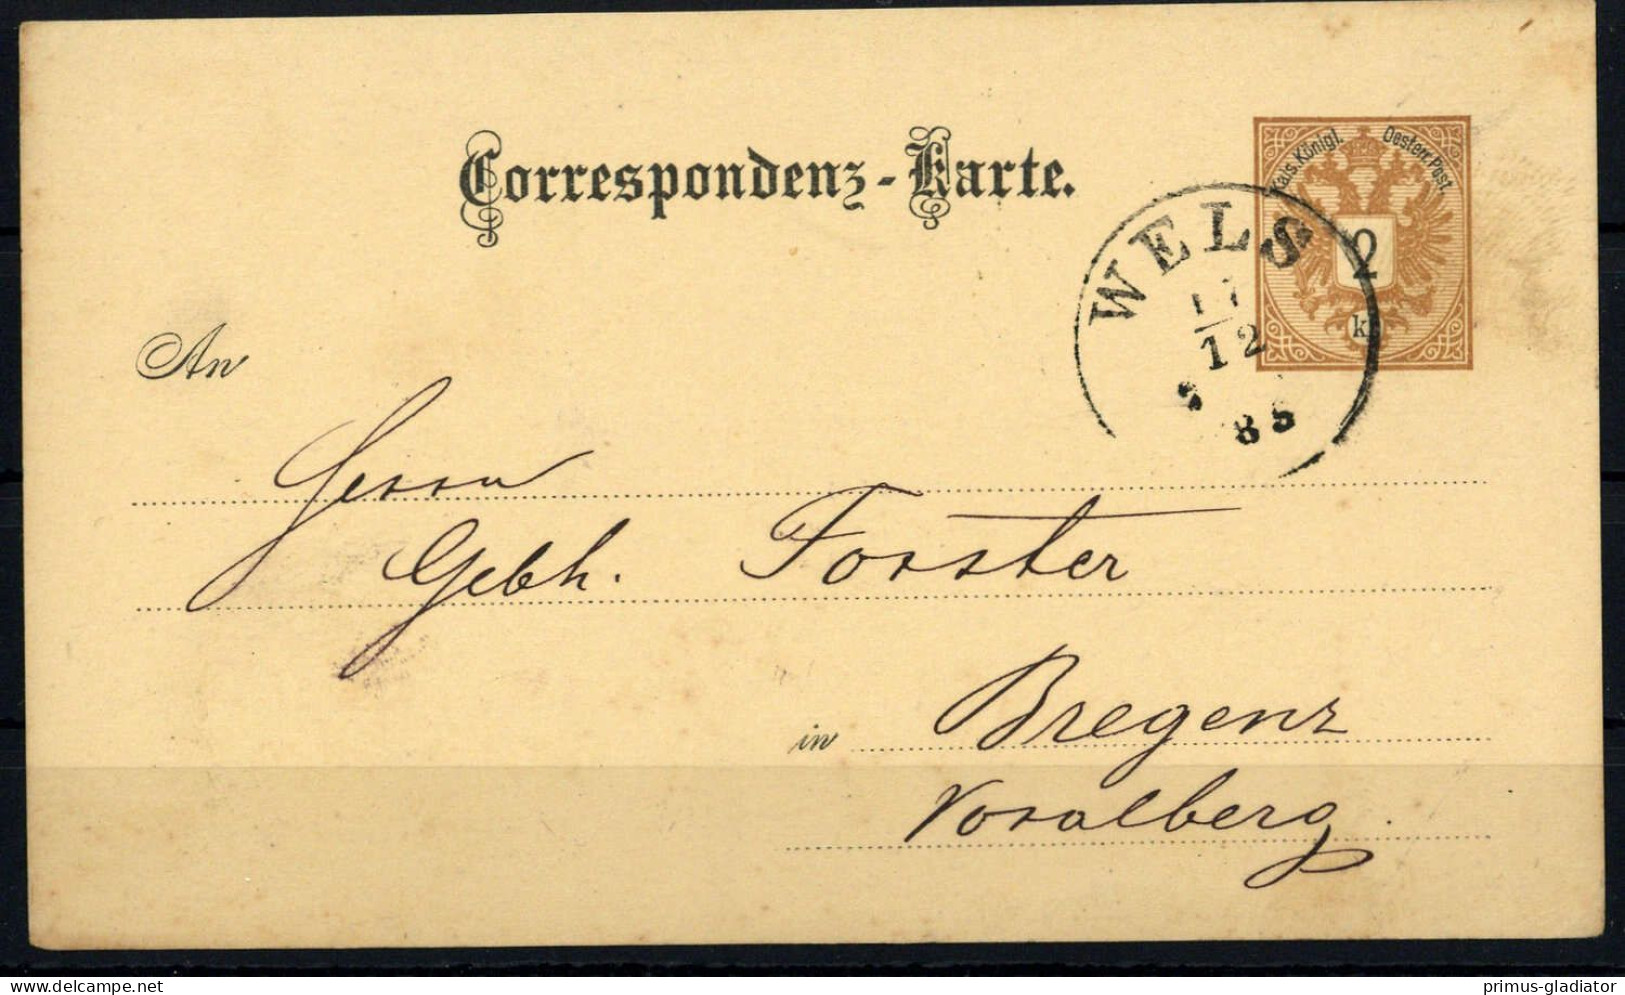 Correspondenz-Karte.
Kais. Königl. Oesterr. Post
2
kr
WELS
12
85
An
Herrn
Gebh. Forster
in Bregenz
Voralberg.
www.delcampe.net
primus-gladiator